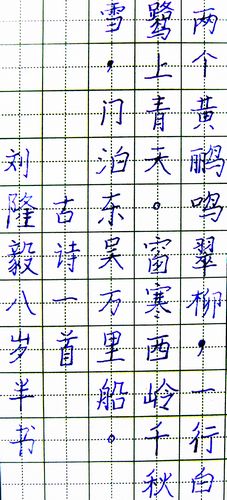 两个黄鹂鸣翠柳，一行白
鹭上青天。窗寒西岭千秋
雪，门泊东吴万里船。
古诗一首
刘隆毅八岁半书